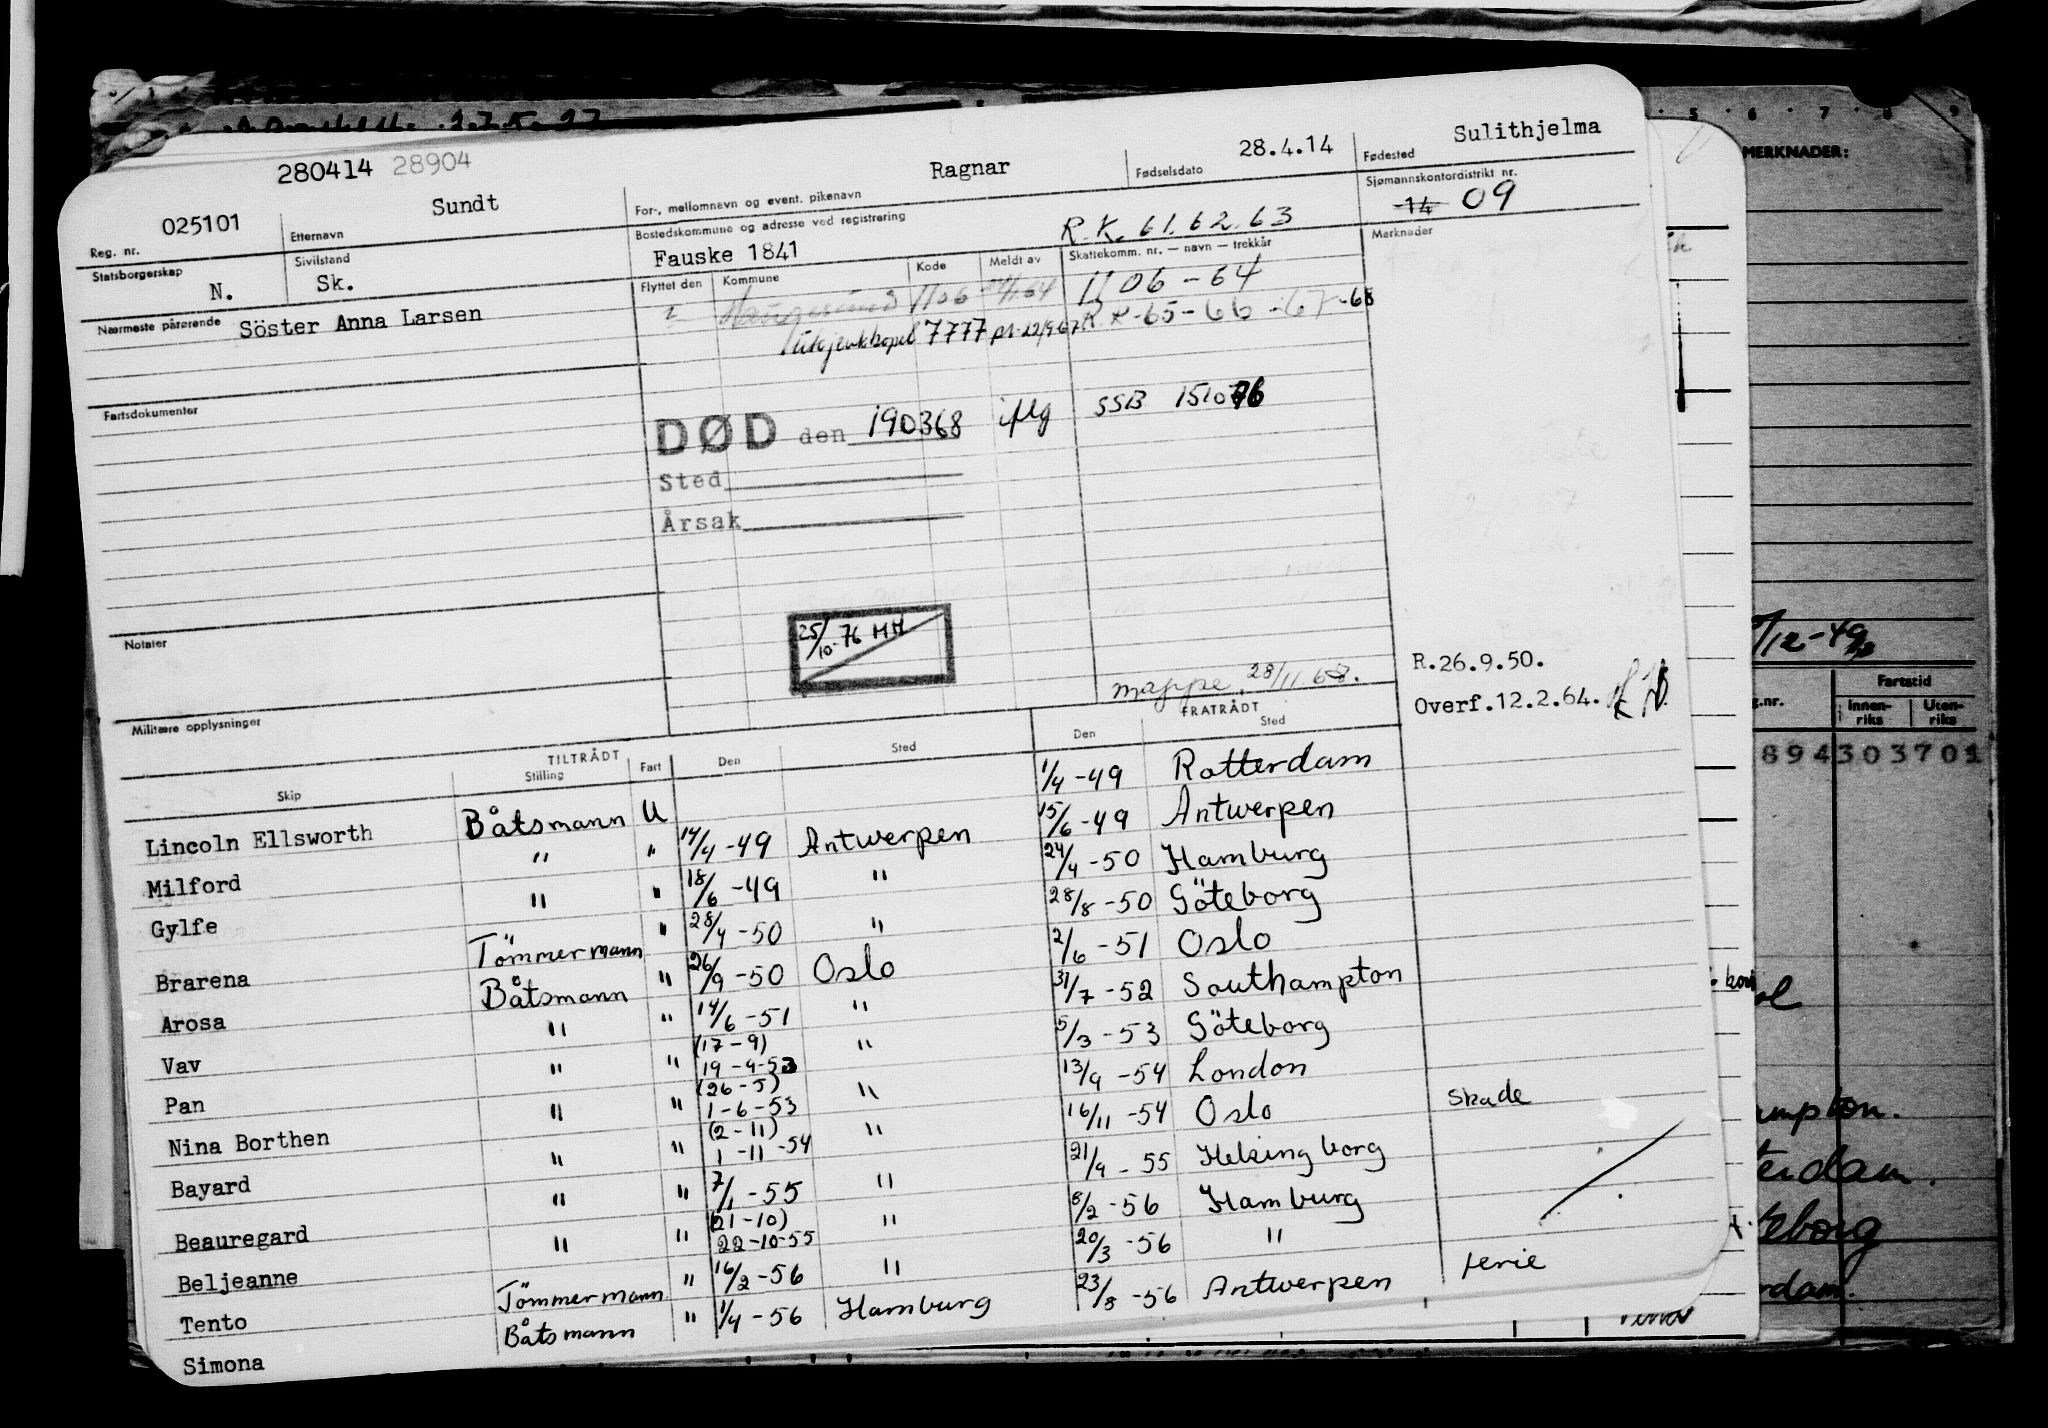 280414 28904
Ragnar
28.4.14
Sulithjelma
025101
Sundt
For-, mellomnavn og event. pikenavn
Fødselsdato
Fødested
Reg. nr.
Etternavn
Bostedskommune og adresse ved registrering
R.K. 61.62.63
Sjømannskontordistrikt nr.
14 09
Statsborgerskap
N.
Sivilstand
Sk.
Fauske 1841
Skattekomm. nr. — navn — trekkår
Merknader
Flyttet den
Kommune
Kode
Meldt av
1106 - 64
Nærmeste pårørende
Söster Anna Larsen
Haugesund 1106
7777
R K -65-66-67-68
Fartsdokumenter
DØD den 190368 iflg SSB 151076
Sted
Årsak
25/10-76 HH
Notater
mappe 28/11.68.
R.26.9.50.
Overf.12.2.64.
Militære opplysninger
TILTRÅDT
FRATRÅDT
Skip
Stilling
Fart
Den
Sted
Den
Sted
Lincoln Ellsworth Båtsmann U 1/4-49 Rotterdam
Milford " " 14/4-49 Antwerpen 15/6-49 Antwerpen
Gylfe " " 18/6-49 " 24/4-50 Hamburg
Brarena Tömmermann " 28/4-50 " 28/8-50 Göteborg
Arosa Båtsmann " 26/9-50 Oslo 2/6-51 Oslo
Vav " " 14/6-51 " 31/7-52 Southampton
Pan " " (17-9) 19-9-52 " 5/3-53 Göteborg
Nina Borthen " " (26-5) 1-6-53 " 13/9-54 London
Bayard " " (2-11) 1-11-54 " 16/11-54 Oslo skade
Beauregard " " 7/1-55 " 21/9-55 Helsingborg
Beljeanne " " (21-10) 22-10-55 " 8/2-56 Hamburg
Tento Tömmermann " 16/2-56 " 20/3-56 "
Simona Båtsmann " 1/4-56 Hamburg 23/8-56 Antwerpen ferie
MERKNADER:
/12-49
Fartstid
g.nr.
Innen-
riks
Uten-
riks
894303701
mpton.
terdam.
teborg
rdam.